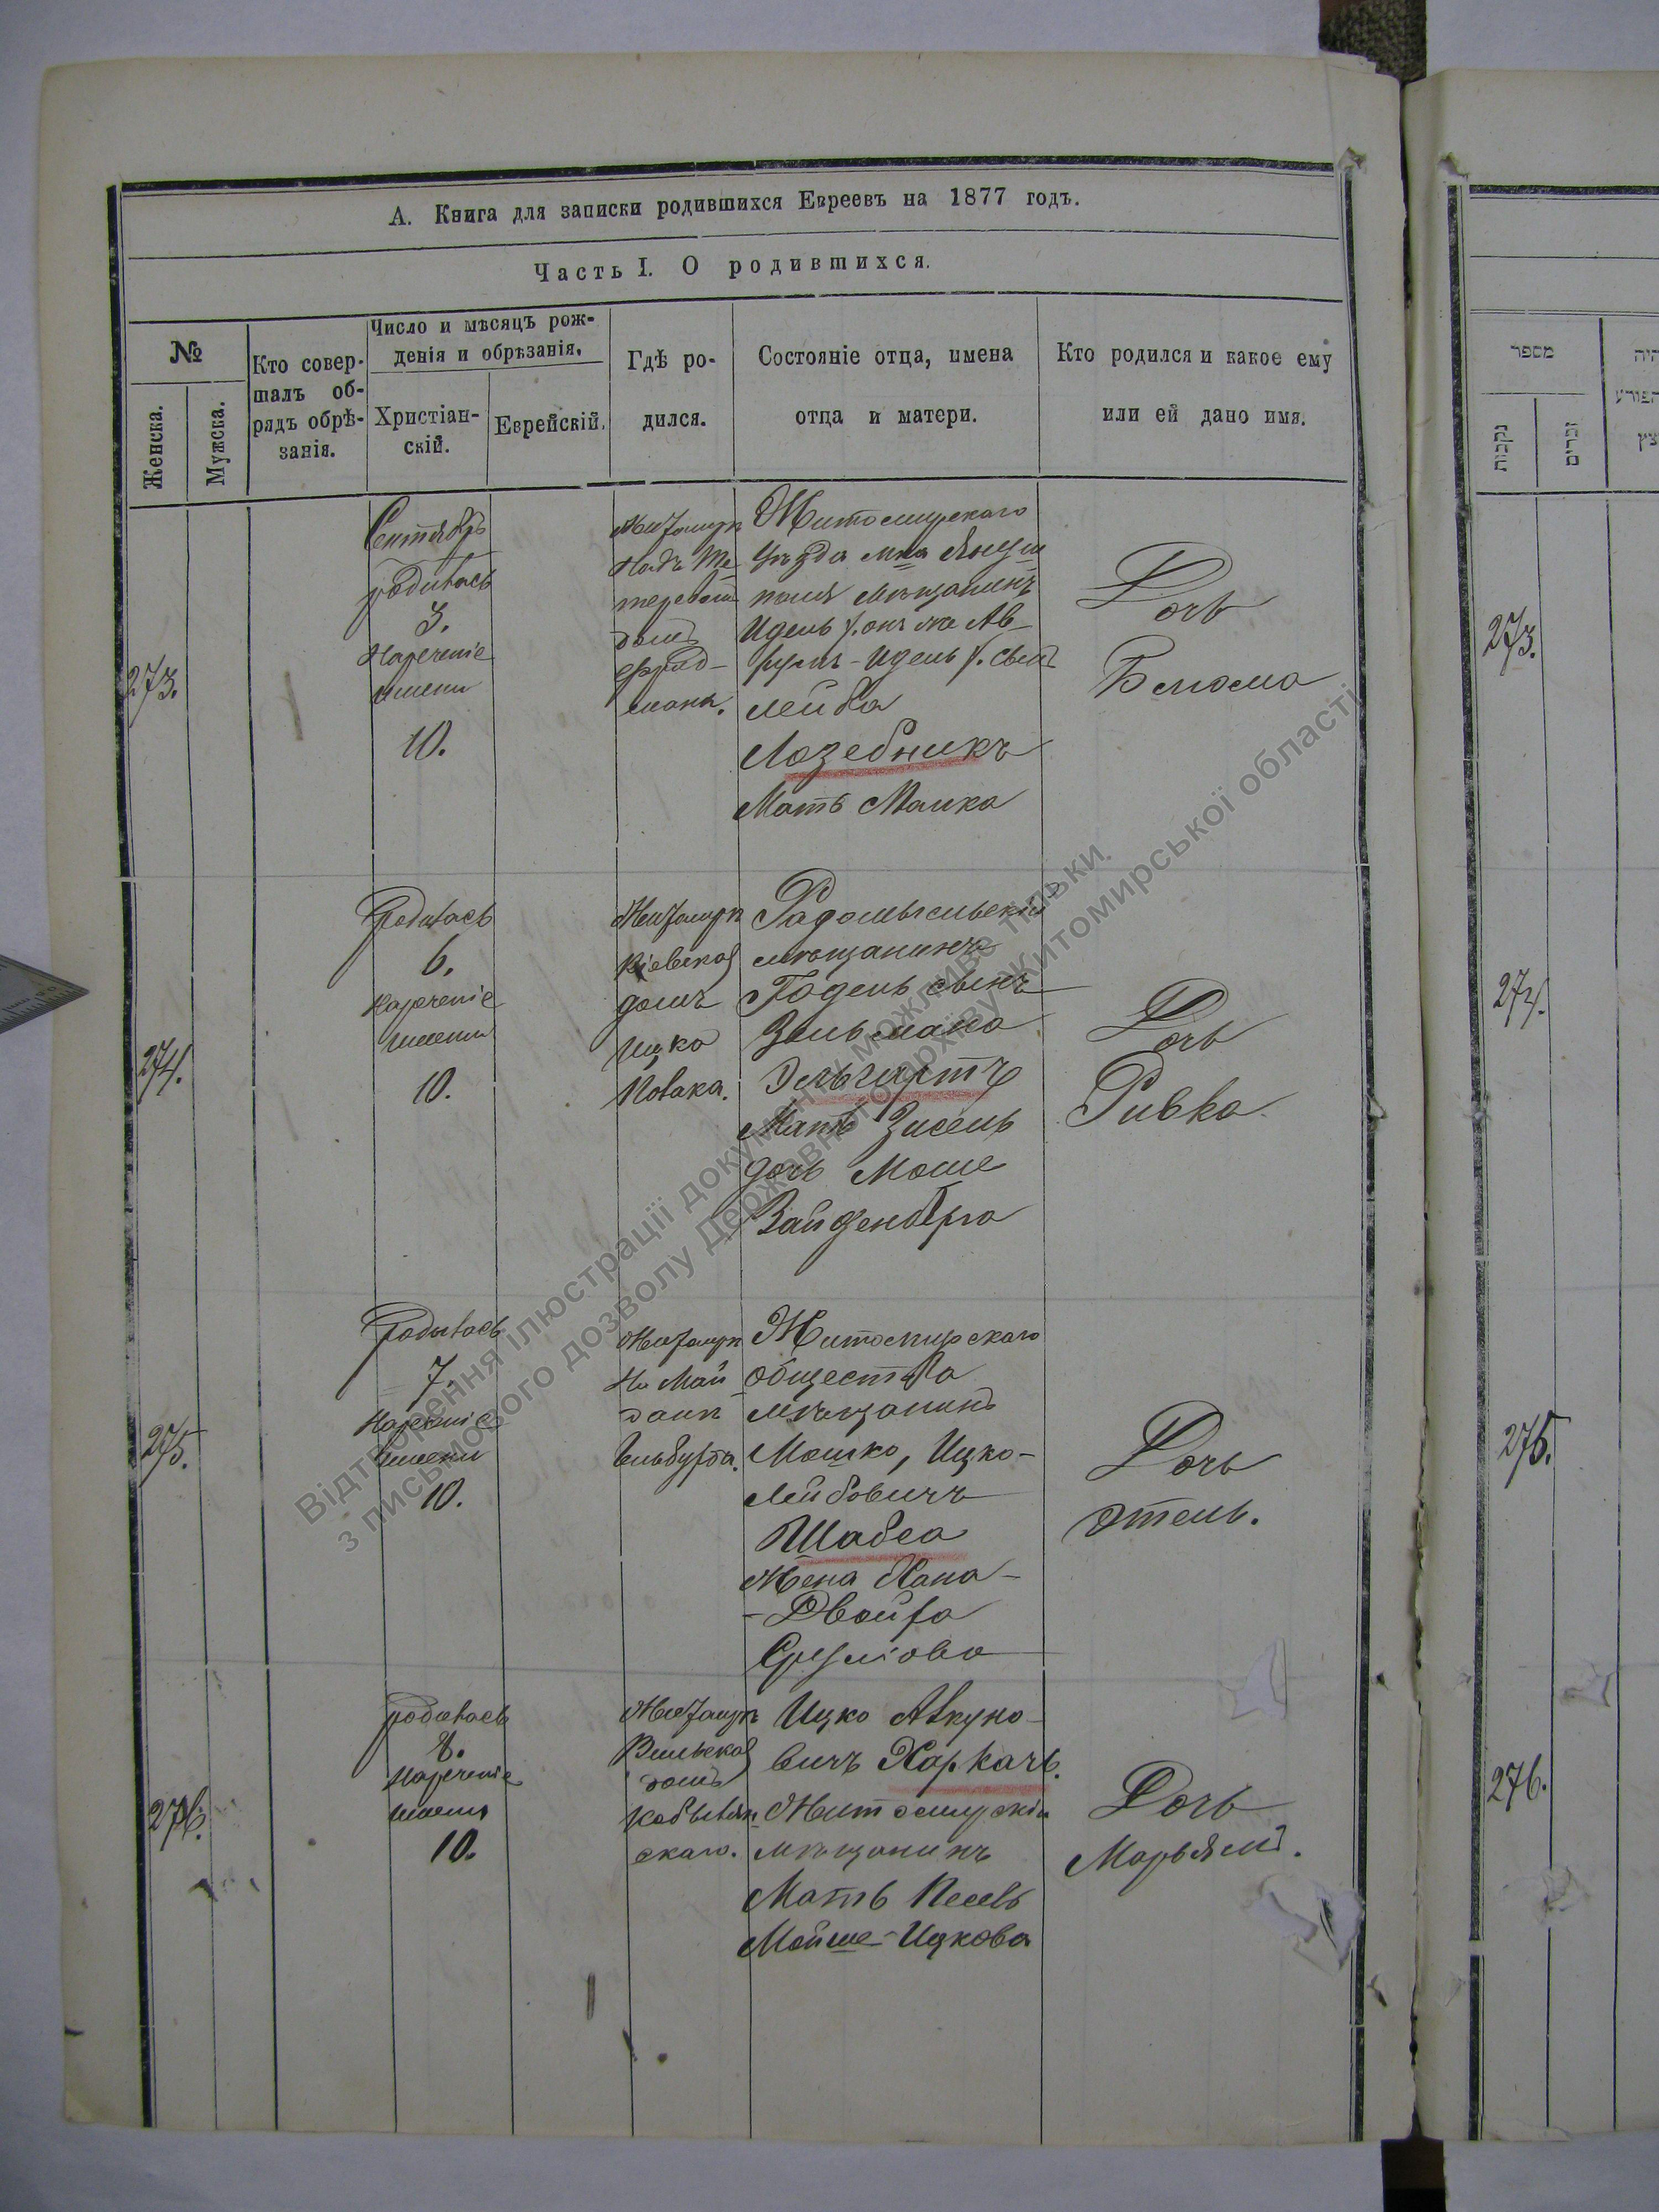 А. Книга для записки родившихся Евреевъ на 1877 годъ.
Часть I. О родившихся.
№
Женска.
Мужска.
Кто совер-
шалъ об-
рядъ обрѣ-
занія.
Число и мѣсяцъ рож-
денія и обрѣзанія.
Христіан-
скій.
Еврейскій.
Гдѣ ро-
дился.
Состояніе отца, имена
отца и матери.
Кто родился и какое ему
или ей дано имя.
273.
Сентябрь
родилась
3.
Нареченіе
имени
10.
Житомиръ
Надъ Те-
теревомъ
домъ
Фрид-
мана.
Житомирскаго
Уѣзда м-ка Януш
поля мѣщанинъ
Идель /. онъ же Ав-
румъ-Идель /. сынъ
Лейба
Лозебникъ
Мать Малка
Дочь
Блюма
274.
родилась
6.
Нареченіе
имени
10.
Житомиръ
Кіевская
домъ
Ицка
Новака.
Радомысльскій
мѣщанинъ
Годель сынъ
Зельмана
Мать Зисель
дочь Моше
Вайденберга
Дочь
Ривка.
275.
родилась
7.
Нареченіе
имени
10.
Житомиръ
На Май
данѣ
Мошко, Ицко-
Лейбовичъ
Житомирскаго
общества
мѣщанинъ
Шабса
Жена Хана-
-Двойра
Сруліова
Дочь
Этель.
276.
родилась
8.
Нареченіе
имени
10.
Житомиръ
Вильская
домъ
Кобылян-
скаго.
Ицко
вичъ Харкачъ.
Житомирскій
мѣщанинъ
Мать Песевъ
Мойше-Ицкова
Дочь
Марьямъ.
מספר
נקבות
זכרים
273.
274.
275.
276.
Відтворення ілюстрації документу можливо тільки
з письмового дозволу Державного архіву Житомирської області.